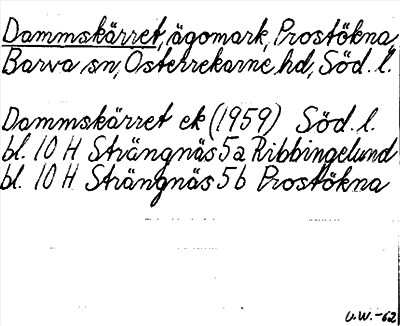 Dammskärret, ägomark, Prostökna
Barva sn, Österrekarne hd, Söd. l.
Dammskärret ek (1959) Söd. l.
bl. 10 H Strängnäs 5a Ribbingelund
bl. 10 H Strängnäs 5b Prostökna
U.W.-62